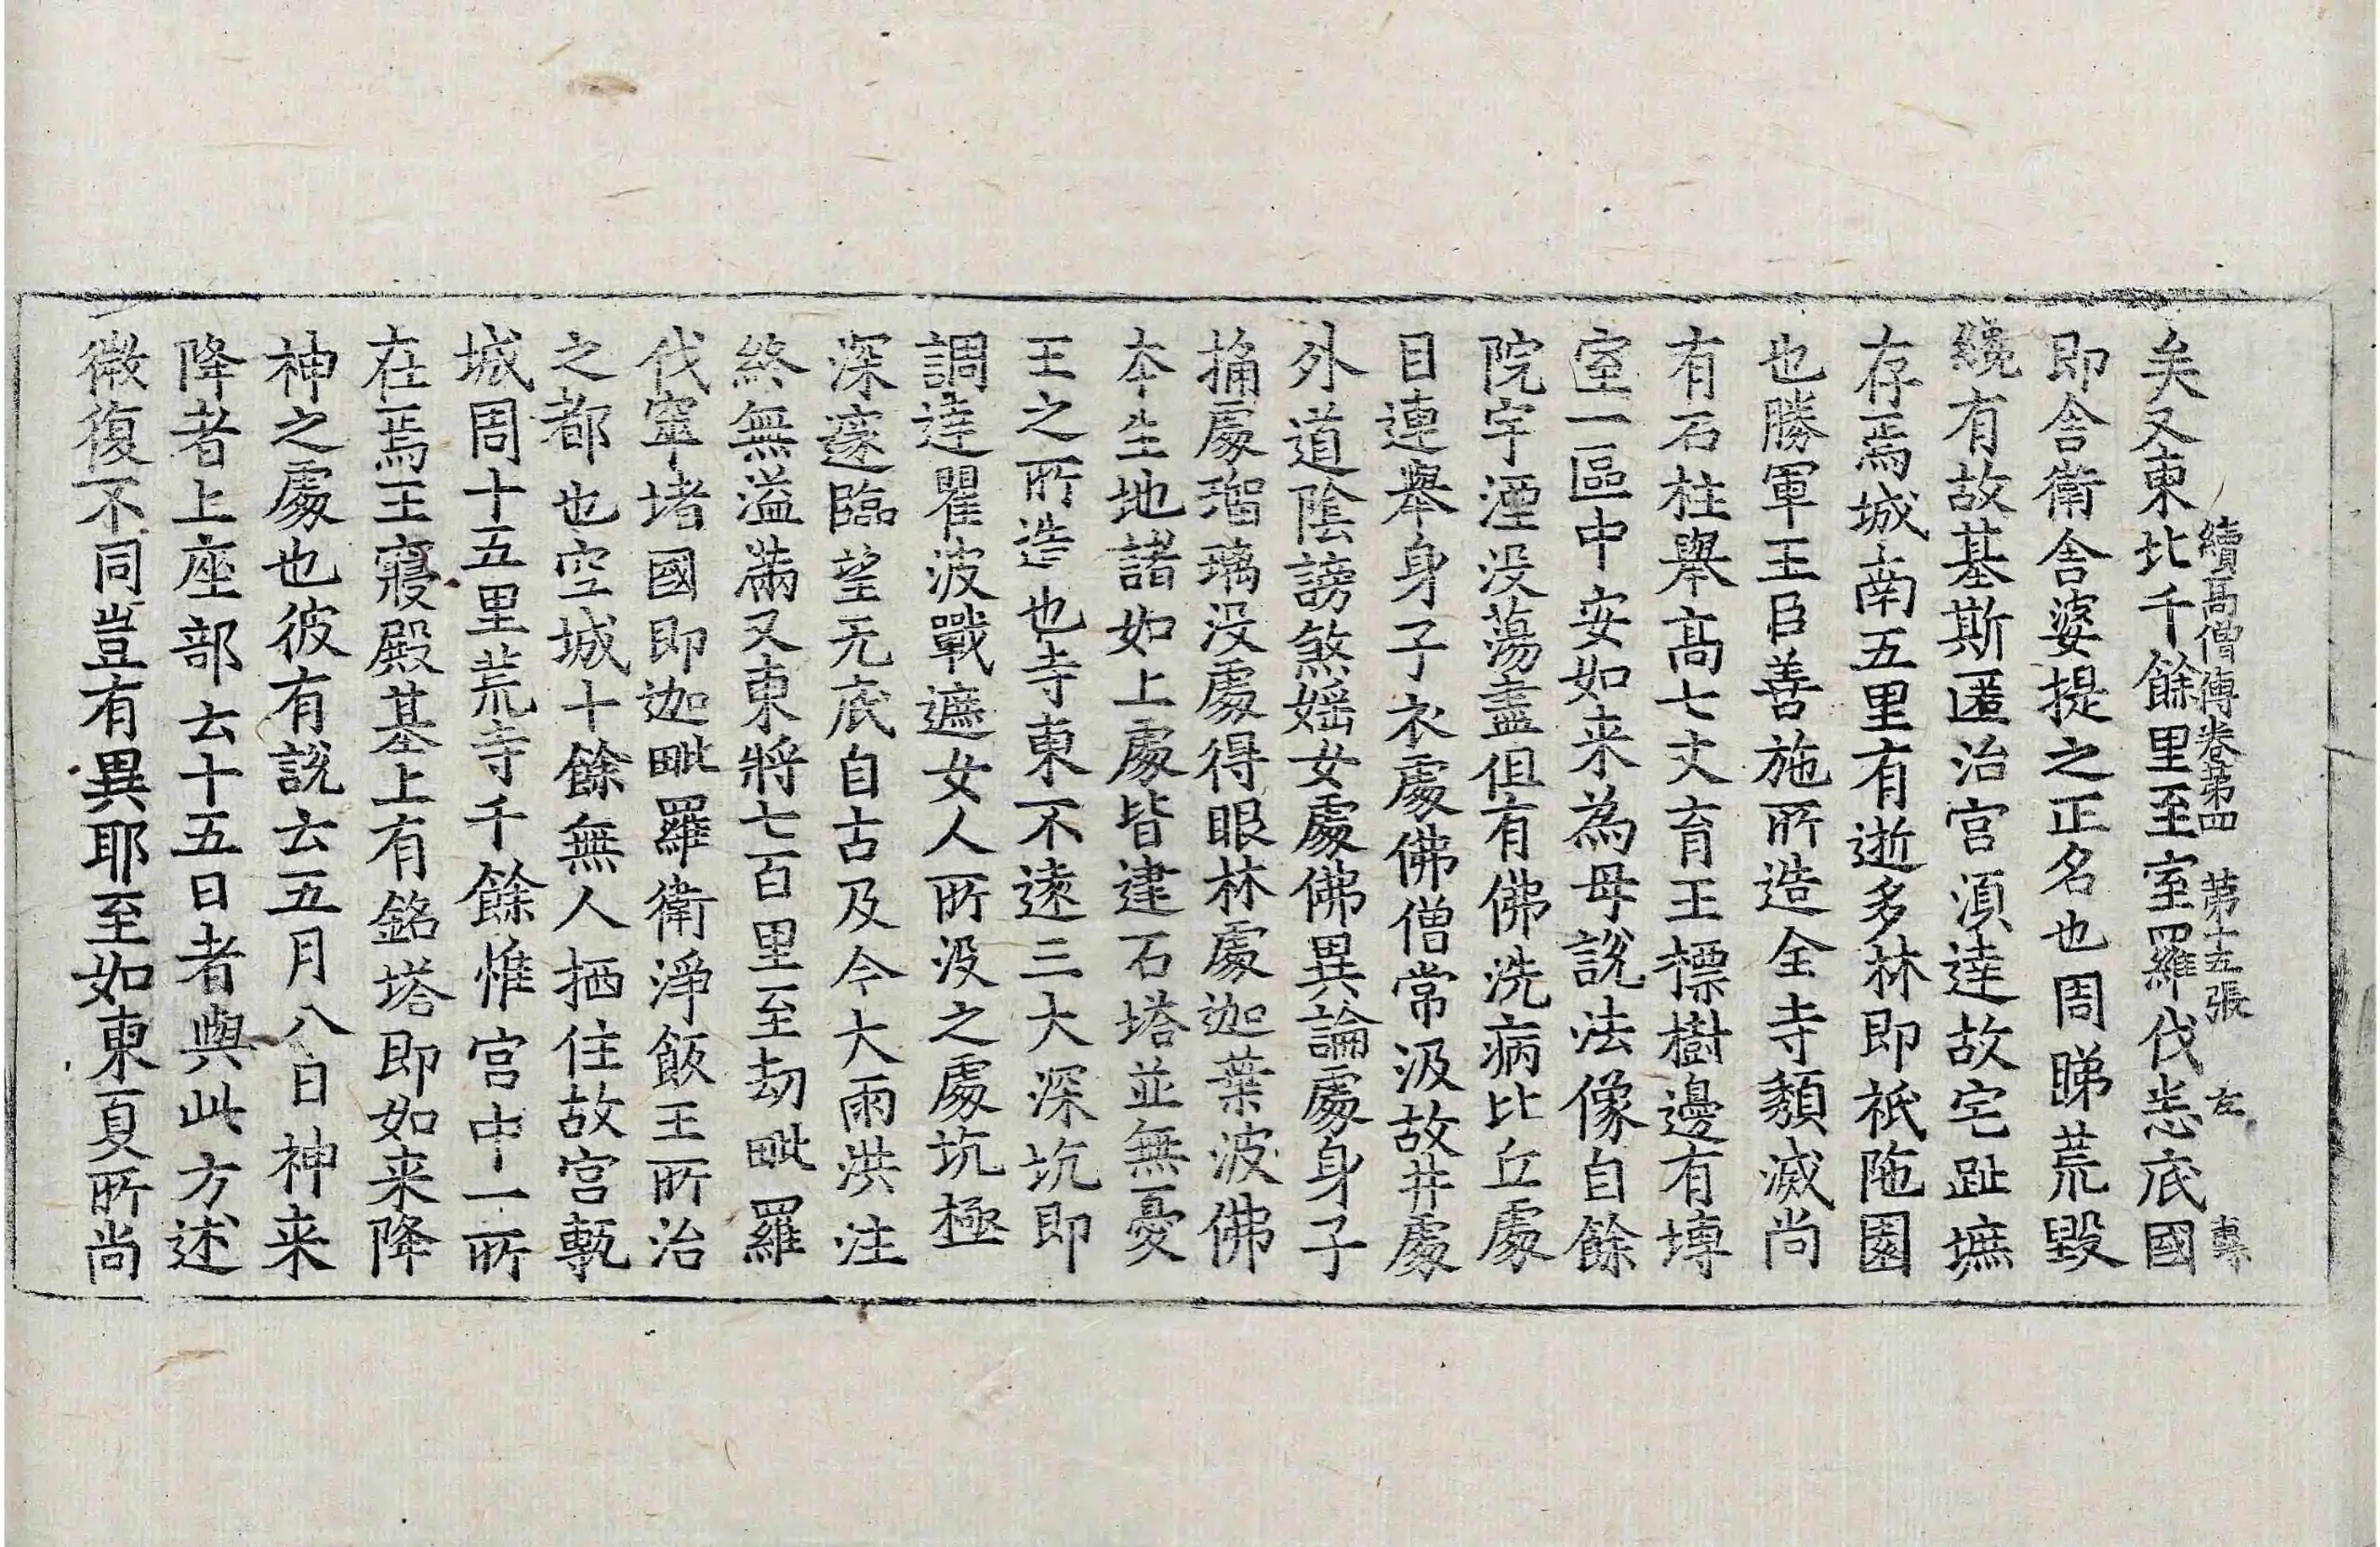 續高僧傳卷第四 第十五張 左
矣又東北千餘里至室羅伐悉底國
即舍衛舍婆提之正名也周睇荒毀
纔有故基斯匿治宮湏達故宅趾墌
存焉城南五里有逝多林即祇陁園
也勝軍王臣善施所造今寺頹滅尚
有石柱舉高七丈育王標樹邊有塼
室一區中安如来為母說法像自餘
院宇湮没蕩盡但有佛洗病比丘處
目連舉身子衣處佛僧常汲故井處
外道陰謗煞婬女處佛異論處身子
捅處瑠璃没處得眼林處迦葉波佛
本生地諸如上處皆建石塔並無憂
王之所造也寺東不遠三大深坑即
調達瞿波戰遮女人所没之處坑極
深邃臨望无底自古及今大雨洪注
終無溢滿又東將七百里至劫毗羅
伐窣堵國即迦毗羅衛淨飯王所治
之都也空城十餘無人栖住故宮甎
城周十五里荒寺千餘惟宮中一所
在焉王寢殿基上有銘塔即如来降
神之處也彼有說云五月八日神来
降者上座部云十五日者與此方述
微復不同豈有異耶至如東夏所尚